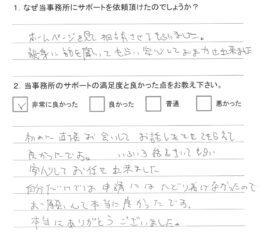 1. なぜ当事務所にサポートを依頼頂けたのでしょうか？
ホームページを見て相談させてもらいました。
親身に話を聞いてもらい、安心しておまかせ出来ました
2. 当事務所のサポートの満足度と良かった点をお教え下さい。
✓ 非常に良かった 良かった 普通 悪かった
初めに直接お会いしてお話しをさせてもらえて
良かったです。 いろいろ話をきいてもらい
安心してお任せ出来ました
自分だけでは申請にはたどり着けなかったので
お願いして本当に良かったです。
本当にありがとうございました。